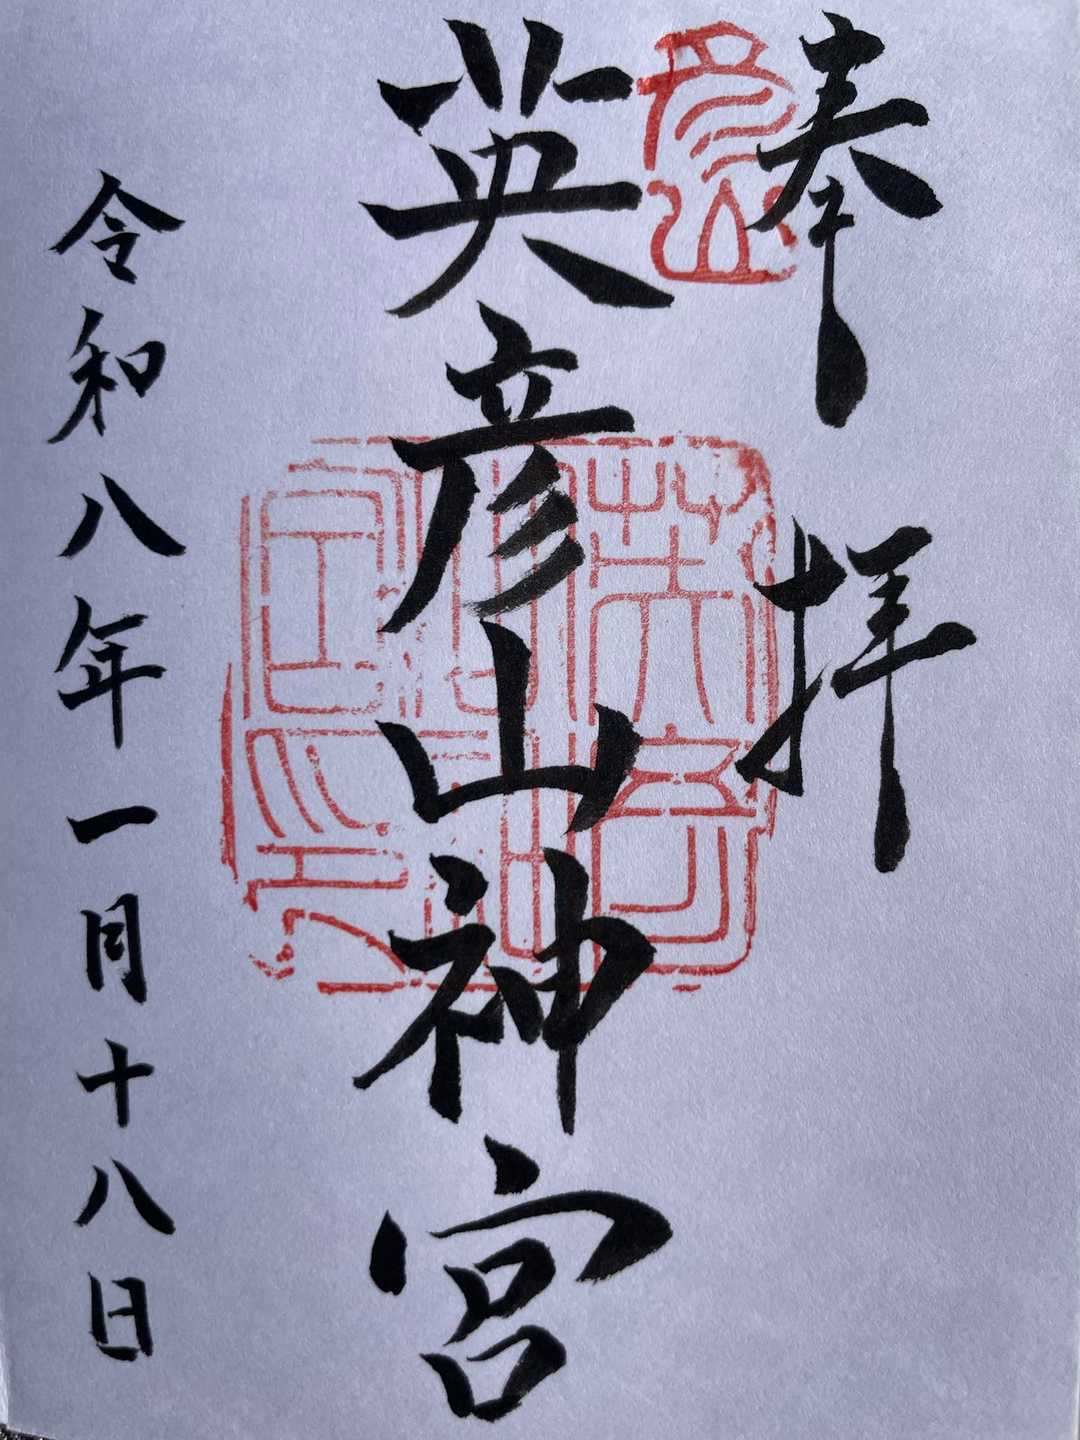 奉拝
英彦山神宮
令和八年一月十八日